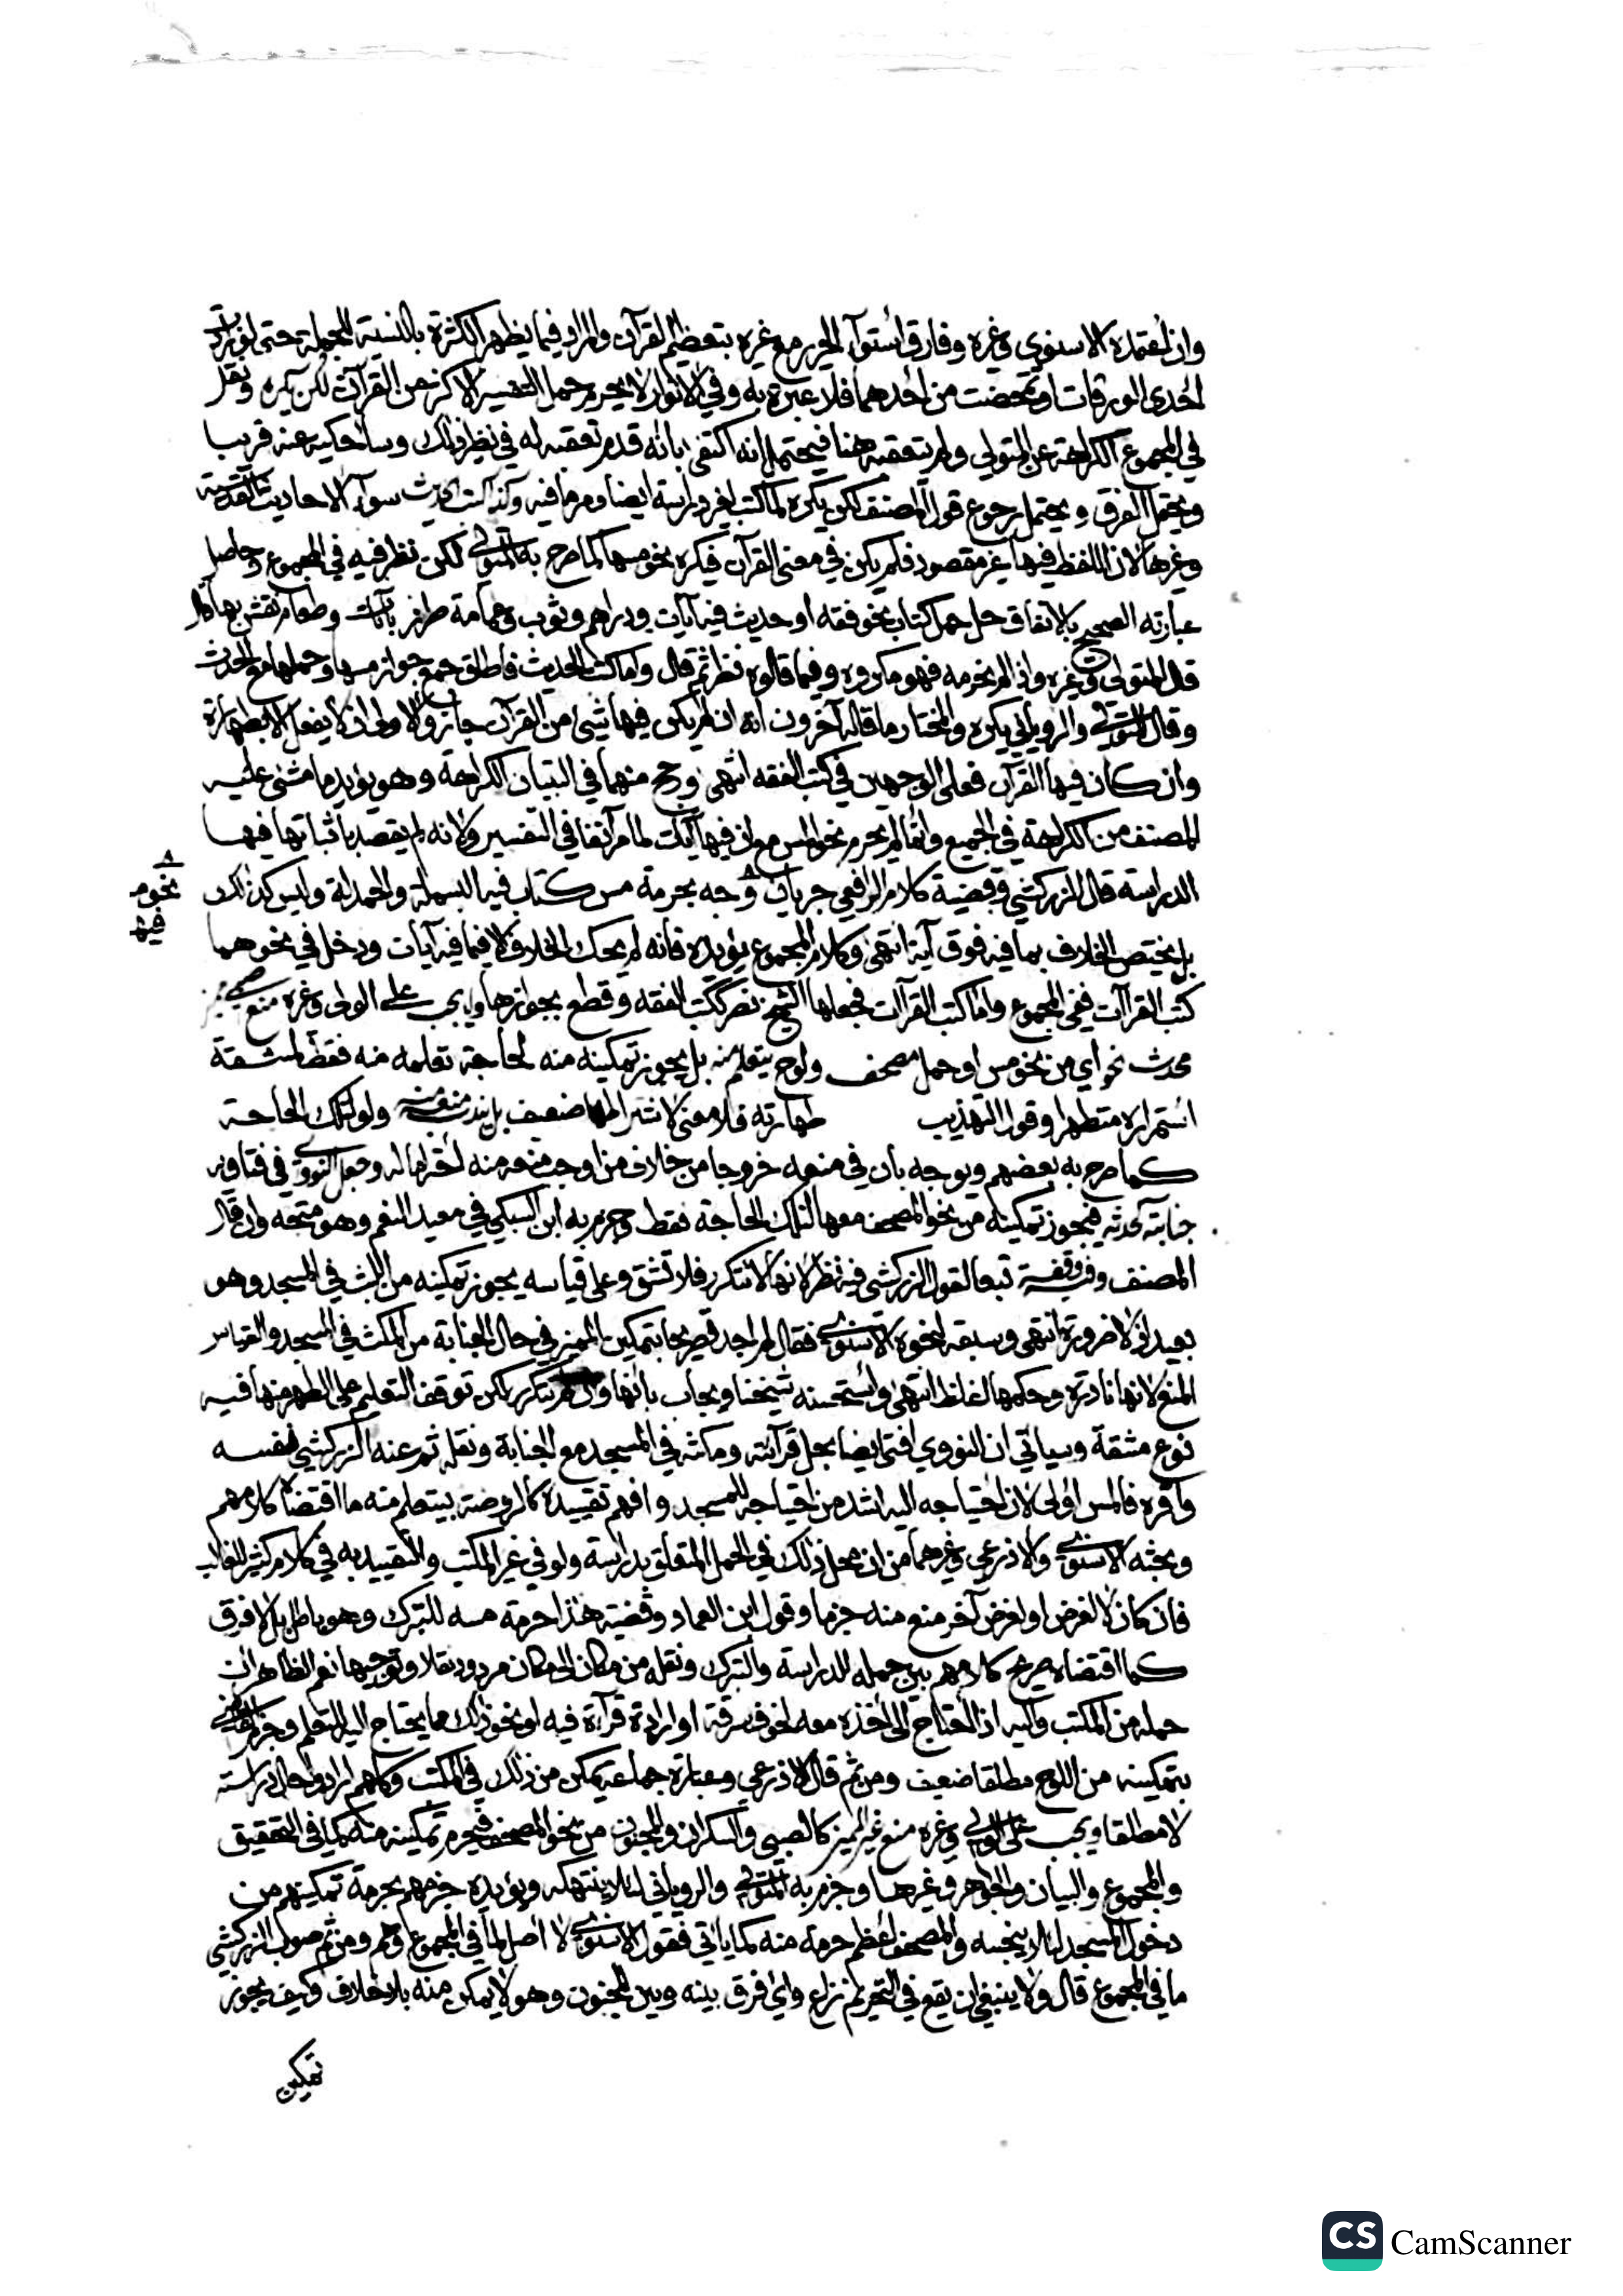 وان اعتمده الاسنوي وغيره وفارق استواء الحرير مع غيره بتعظيم القرآن والمراد فيما يظهر الكثرة بالنسبة للجملة حتى لو زادت
احدى الورقات او تمحضت من احدهما فلا عبرة به وفي الانوار لا يحرم حمل التفسير الاكثر من القرآن لكن يكره ونقل
في المجموع الكراهة عن المتولي ولم يتعقبه هنا فيحتمل انه اكتفى بانه قدم تعقبه له في نظير ذلك وساحكيه عنه قريبا
ويحتمل الفرق ويحتمل رجوع قول المصنف لكن يكره لما كتب لغير دراسة ايضا ومر ما فيه وكذا كتب حديث سواء الاحاديث القدسية
وغيرها لان اللفظ فيها غير مقصود فلم يكن في معنى القرآن فيكره نحو مسها كما صرح به المتولي لكن نظر فيه في المجموع وحاصل
عبارته الصحيح بالاتفاق حل حمل كتاب نحو فقه او حديث فيه آيات ودراهم وثوب وعمامة طرز بآيات وطعام نقش بها قال
قال المتولي وغيره واذا لم نحرمه فهو مكروه وفيما قالوه نظر ثم قال واما كتب الحديث فاطلق جمع جواز مسها وحملها مع الحدث
وقال المتولي والروياني يكره والمختار ما قاله آخرون انه ان لم يكن فيها شيء من القرآن جاز والاولى ان لا يفعل الا بطهارة
وان كان فيها القرآن فعلى الوجهين في كتب الفقه انتهى ورجح منهما في التبيان الكراهة وهو يؤيد ما مشى عليه
المصنف من الكراهة في الجميع وانما لم يحرم نحو المس مع ان فيها آيات لما مر آنفا في التفسير ولانه لم يقصد باثباتها فيها
الدراسة قال الزركشي وقضية كلام الرافعي جريان وجه بحرمة مس كتاب فيه البسملة والحمدلة وليس كذلك
نحوه
فيها
بل يختص الخلاف بما فيه فوق آية انتهى وكلام المجموع يؤيده فانه لم يحك الخلاف الا فيما فيه آيات ودخل في نحوهما
كتب القراآت ففي المجموع واما كتب القراآت فجعلها الشيخ نصر ككتب الفقه وقطع بجوازها ولا يجب على الولي وغيره منع صبي مميز
محدث نحو اي من نحو مس او حمل مصحف ولوح يتعلم منه بل يجوز تمكينه منه لحاجة تعلمه منه فقط لمشقة
استمراره متطهرا وقول التهذيب طهارته فلا معنى لاشتراطها ضعيف بل يندب منعه منه ولو لتلك الحاجة
كما صرح به بعضهم ويوجه بان في منعه خروجا من خلاف من اوجب منعه منه احتراما له وجعل النووي في فتاويه
جنابته كحدثه فيجوز تمكينه من نحو المصحف معها لتلك الحاجة فقط وجزم به ابن السبكي في معيد النعم وهو متجه وان قال
المصنف وفيه وقفة تبعا لقول الزركشي فيه نظر لانها لا تتكرر فلا تشق وعلى قياسه يجوز تمكينه من اللبث في المسجد وهو
بعيد اذ لا ضرورة انتهى وسبقه لنحوه الاسنوي فقال لم اجد تصريحا بتمكين المميز في حال الجنابة من المكث في المسجد والقياس
المنع لانها نادرة وحكمها اغلظ انتهى واستحسنه شيخنا ويجاب بانها وان لم تتكرر لكن توقف التعليم على الطهر منها فيه
نوع مشقة وسياتي ان النووي افتى ايضا بحل قرآته ومكثه في المسجد مع الجنابة ونقله ثم عنه الزركشي نفسه
واقره فالمس اولى لان احتياجه اليه اشد من احتياجه للمسجد وافهم تقييده كالروضة بيتعلم منه ما اقتضاه كلامهم
وبحثه الاسنوي والاذرعي وغيرهما من ان محل ذلك في الحمل المتعلق بدراسة ولو في غير المكتب والتقييد به في كلام كثير للغالب
فان كان لا لغرض او لغرض آخر منع منه جزما وقول ابن العماد وقضية هذا حرمة مسه للتبرك وهو باطل بل لا فرق
كما اقتضاه صريح كلامهم بين حمله للدراسة والتبرك ونقله من مكان الى مكان مردود نقلا وتوجيها نعم الظاهر ان
حمله من المكتب واليه اذا احتاج الى اخذه معه لخوف سرقة او ارادة قراءة فيه او نحو ذلك مما يحتاج اليه للتعلم وجزم
بتمكينه من اللوح مطلقا ضعيف ومن ثم قال الاذرعي وعبارة جماعة يمكن من ذلك في المكتب وكلهم ارادوا حال دراسته
لا مطلقا ويجب على الولي وغيره منع غير المميز كالصبي والسكران والمجنون من نحو المصحف فيحرم تمكينه منه كما في التحقيق
والمجموع والبيان والجواهر وغيرها وجزم به المتولي والروياني لئلا ينتهكه ويؤيده جزمهم بحرمة تمكينهم من
دخول المسجد لئلا ينجسه والمصحف اعظم حرمة منه كما ياتي فقول الاسنوي لا اصل لما في المجموع وهم ومن ثم صوب الزركشي
ما في المجموع قال ولا ينبغي ان يقع في التحريم نزاع واي فرق بينه وبين المجنون وهو لا يمكن منه بلا خلاف وكيف يجوز
تمكين
CS CamScanner